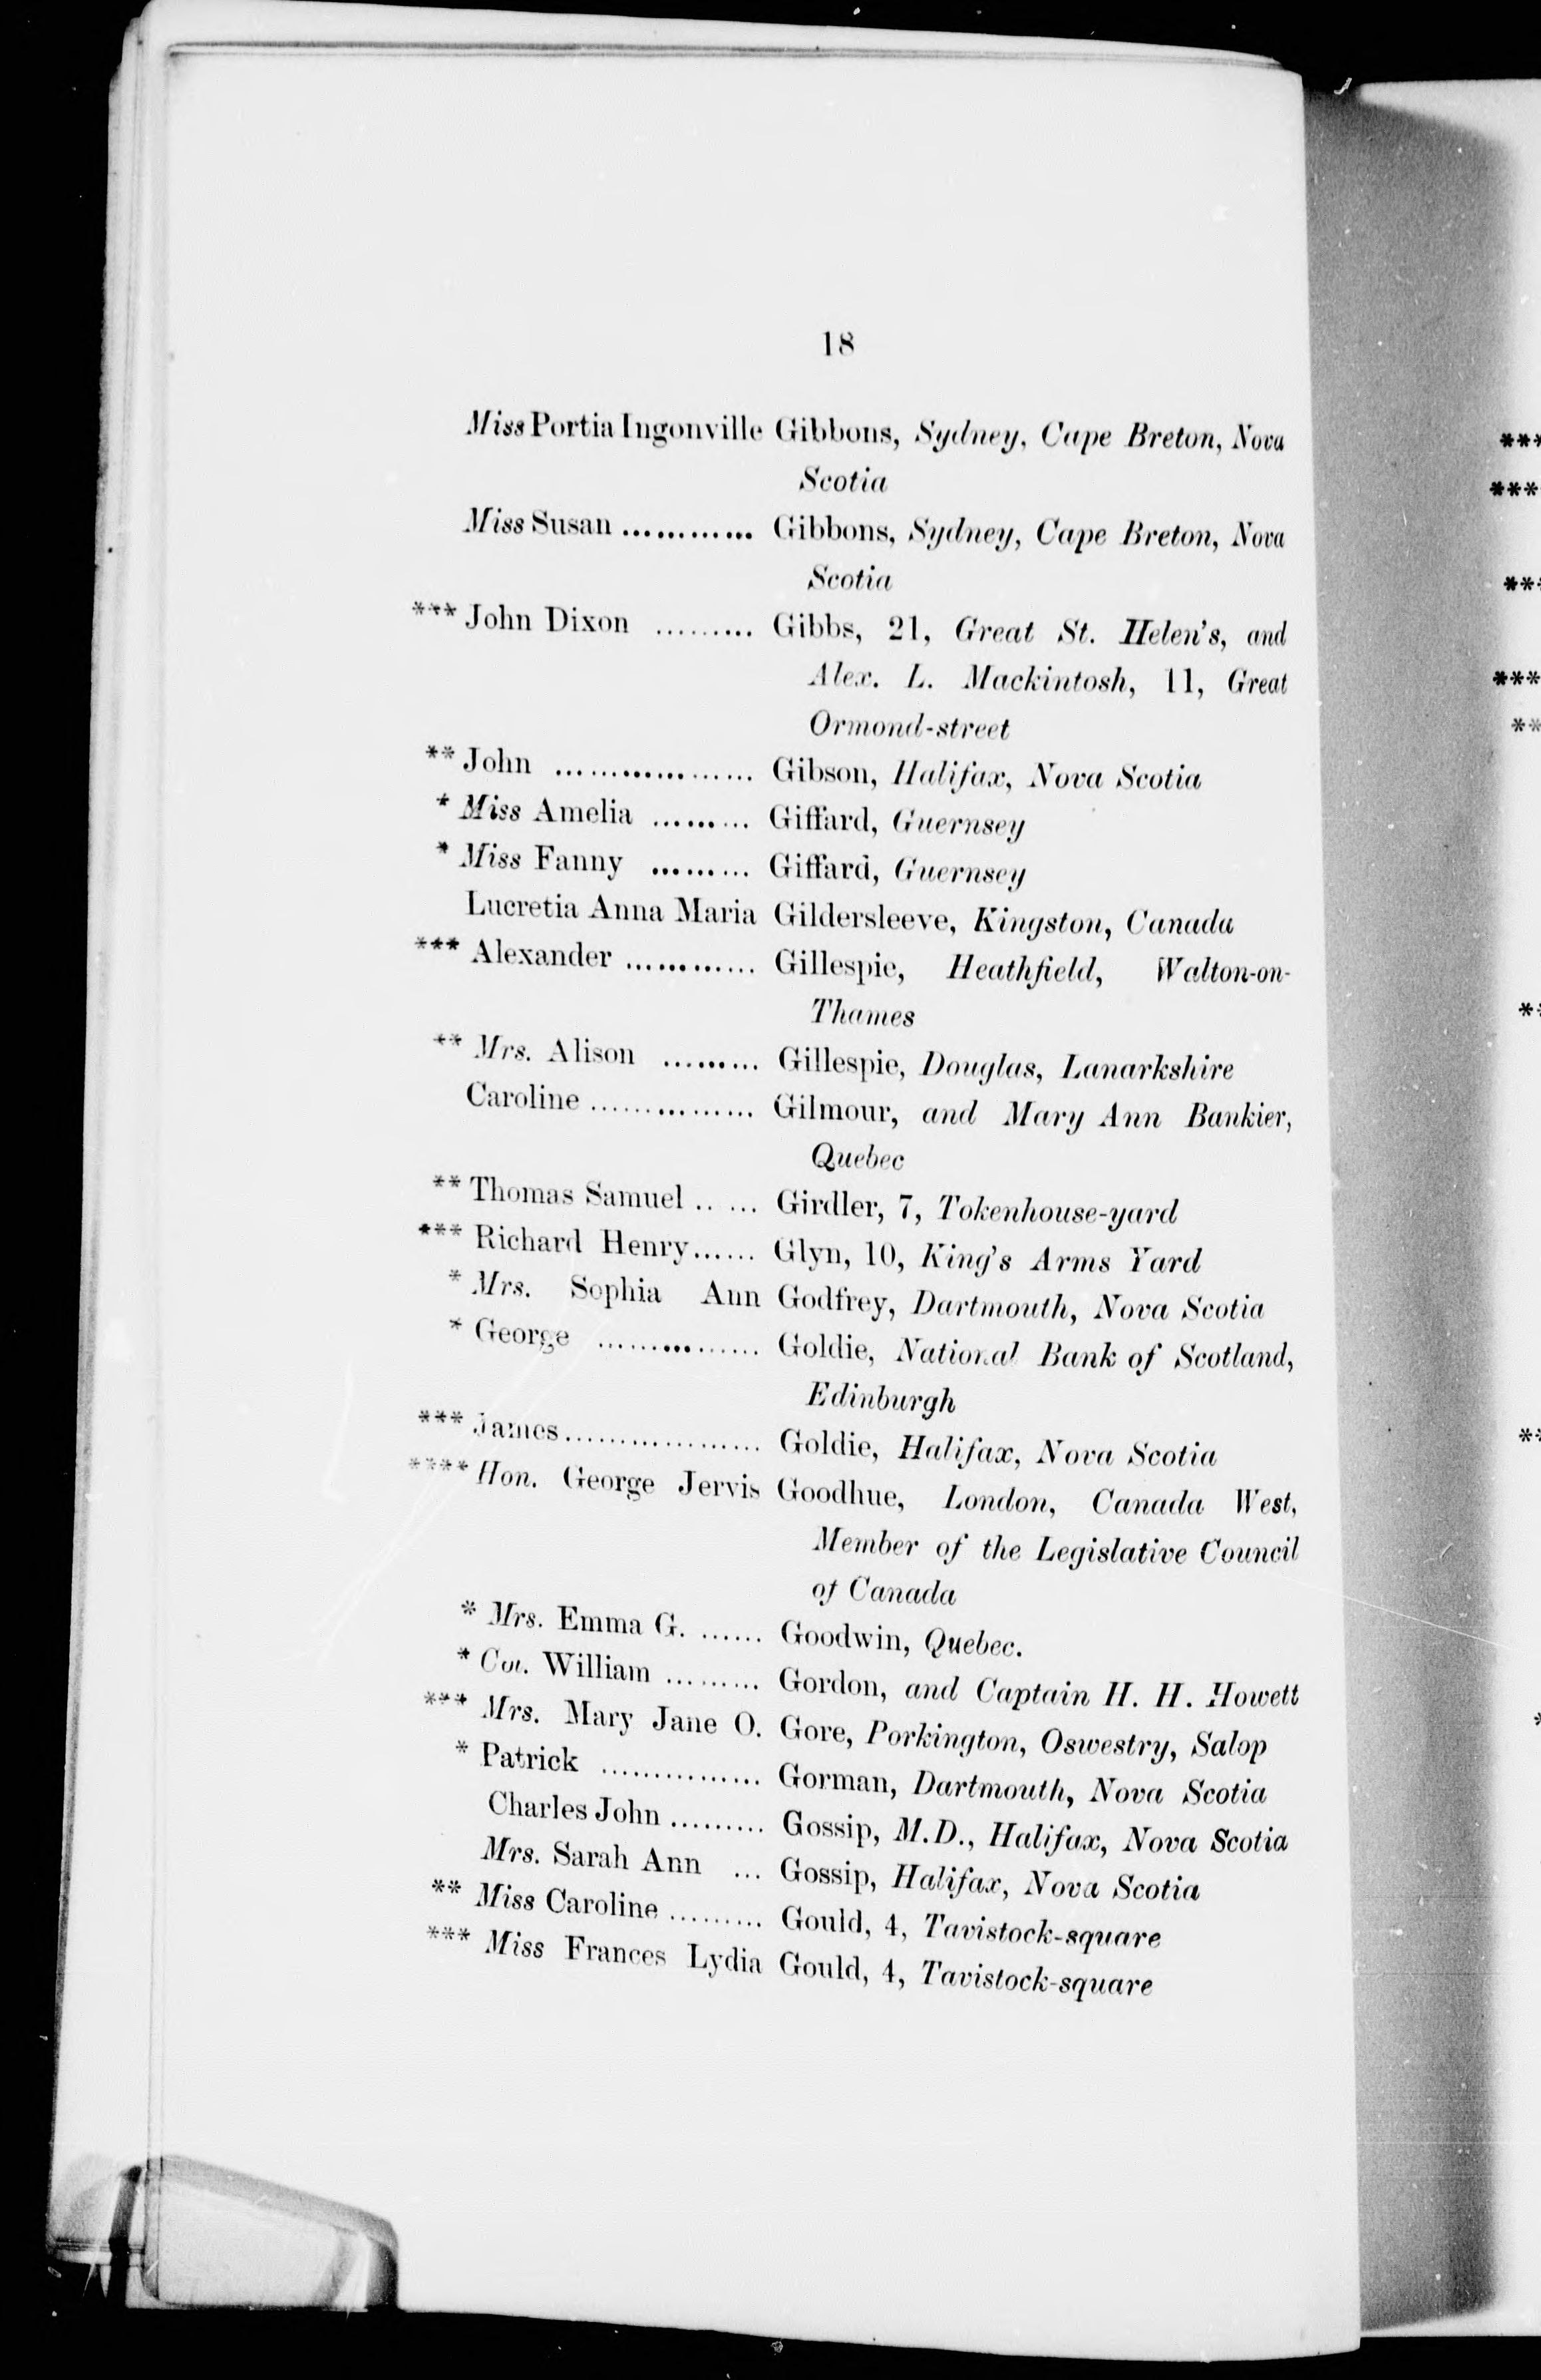 18
Miss Portia Ingonville Gibbons, Sydney, Cape Breton, Nova
Scotia
Miss Susan ............ Gibbons, Sydney, Cape Breton, Nova
Scotia
*** John Dixon ......... Gibbs, 21, Great St. Helen's, and
Alex. L. Mackintosh, 11, Great
Ormond-street
** John .................. Gibson, Halifax, Nova Scotia
* Miss Amelia ......... Giffard, Guernsey
* Miss Fanny ......... Giffard, Guernsey
Lucretia Anna Maria Gildersleeve, Kingston, Canada
*** Alexander ............ Gillespie, Heathfield, Walton-on-
Thames
** Mrs. Alison ......... Gillespie, Douglas, Lanarkshire
Caroline ............... Gilmour, and Mary Ann Bankier,
Quebec
** Thomas Samuel .. ... Girdler, 7, Tokenhouse-yard
*** Richard Henry...... Glyn, 10, King's Arms Yard
* Mrs. Sophia Ann Godfrey, Dartmouth, Nova Scotia
* George ............... Goldie, National Bank of Scotland,
Edinburgh
*** James.................. Goldie, Halifax, Nova Scotia
**** Hon. George Jervis Goodhue, London, Canada West,
Member of the Legislative Council
of Canada
* Mrs. Emma G. ...... Goodwin, Quebec.
* Col. William ......... Gordon, and Captain H. H. Howett
*** Mrs. Mary Jane O. Gore, Porkington, Oswestry, Salop
* Patrick ............... Gorman, Dartmouth, Nova Scotia
Charles John ......... Gossip, M.D., Halifax, Nova Scotia
Mrs. Sarah Ann ... Gossip, Halifax, Nova Scotia
** Miss Caroline ......... Gould, 4, Tavistock-square
*** Miss Frances Lydia Gould, 4, Tavistock-square